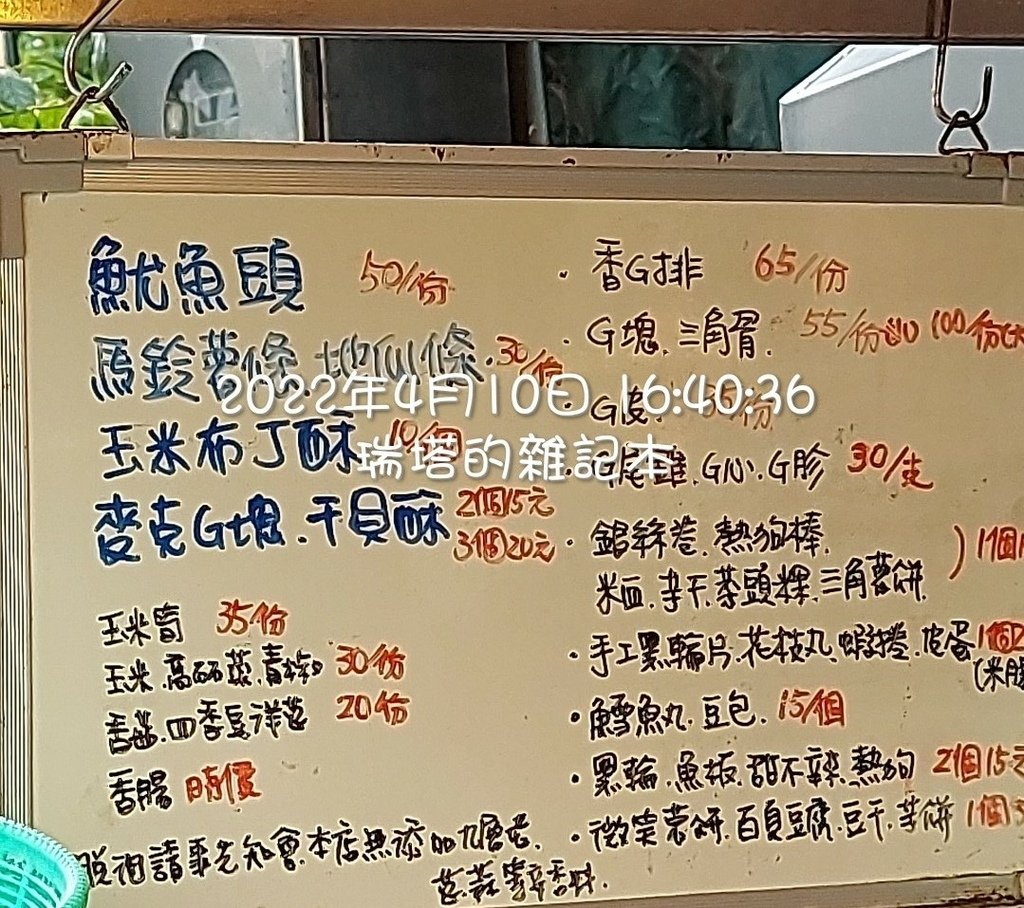 魷魚頭 50/份
馬鈴薯條 地瓜條 30/份
玉米布丁酥 10/個
麥克G塊.干貝酥 2個15元
3個20元
玉米筍 35/份
玉米.高麗菜.青椒 30/份
香菇.四季豆.洋蔥 20/份
香腸 時價
脫油請事先知會.本店無添加九層塔.
蔥.蒜.等辛香料.
·香G排 65/份
·G塊.三角骨. 55/份 100/份
·G皮. 35/份
尾椎.G心.G胗 30/支
·銀絲卷.熱狗棒.
米血.芋干.菜頭粿.三角薯餅. ) 1個
·手工黑輪片.花枝丸.蝦捲.皮蛋 1個
·鱈魚丸.豆包. 15/個
·黑輪.魚板.甜不辣.熱狗 2個15元
·微笑薯餅.百頁豆腐.豆干.芋餅 1個
2022年4月10日 16:40:36
瑞塔的雜記本